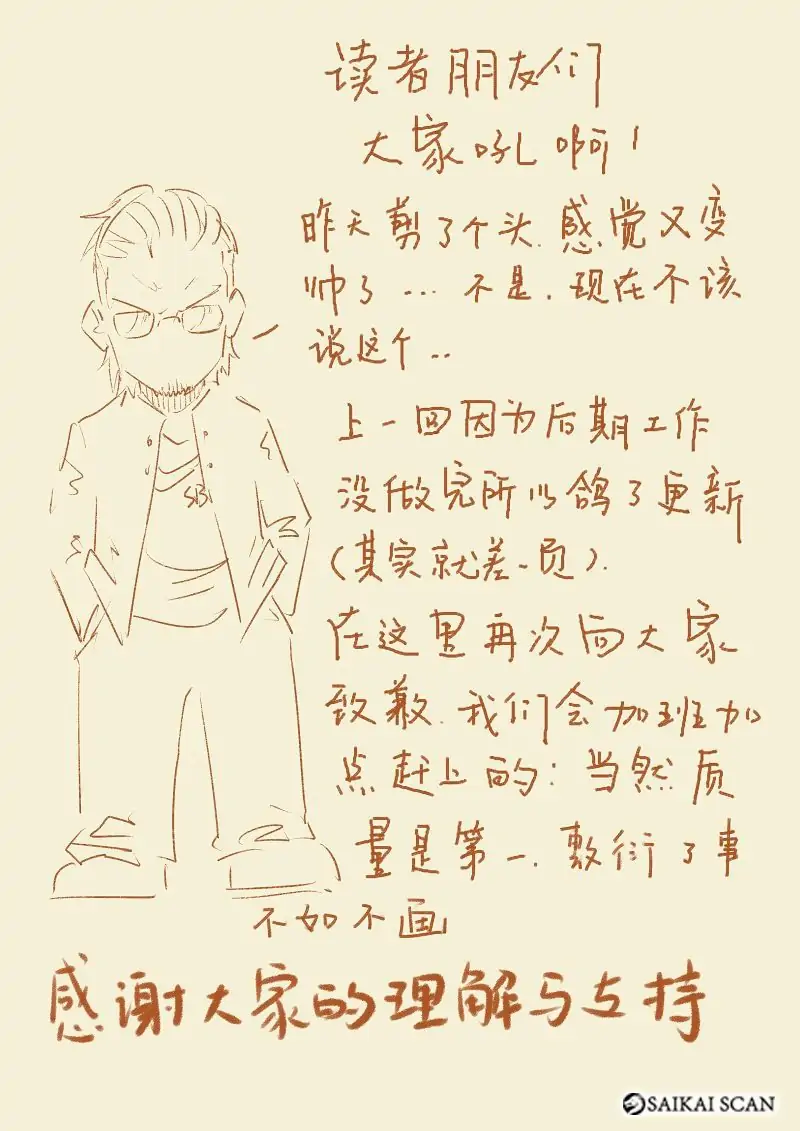 读者朋友们
大家吼啊!
昨天剪了个头.感觉又变
帅了...不是.现在不该
说这个..
上一回因为后期工作
没做完所以鸽了更新
(其实就差一页).
在这里再次向大家
致歉.我们会加班加
点赶上的:当然质
量是第一.敷衍了事
不如不画
感谢大家的理解与支持
SB
SAIKAI SCAN